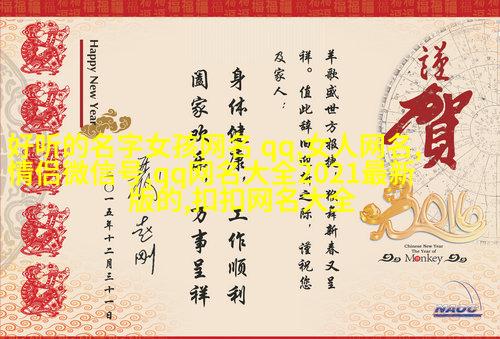 謹
賀
2016
Chinese New Year
The Year of
Monkey
NAOC
羊歌盛世方报捷，猴舞新春又呈
祥。值此辞旧迎新之际，谨祝您
及家人：
身体健康，工作顺利
阖家欢乐，万事呈祥
二〇一五年十二月三十一日
Happy New Year
好听的名字女孩网名 qq,女人网名,
情侣微信号,qq网名大全2021最新
版的,扣扣网名大全